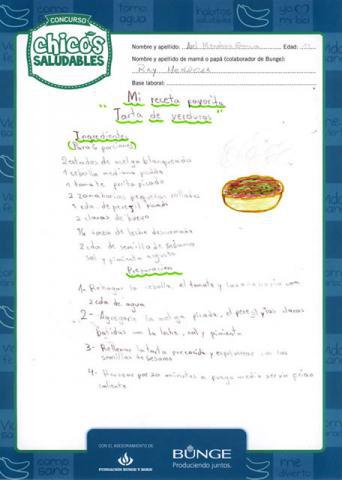 CONCURSO
chicos
SALUDABLES
Nombre y apellido: Edad:
Nombre y apellido de mamá o papá (colaborador de Bunge):
Ray Mendoza
Base laboral:
Mi receta favorita
"Tarta de verduras"
Ingredientes
(Para 6 porciones)
2 atados de acelga blanqueada
1 cebolla mediana picada
1 tomate perita picado
2 zanahorias pequeñas ralladas
1 cda de perejil picado
2 claras de huevo
taza de leche descremada
2 cda de semilla de sésamo
sal y pimienta a gusto
Preparacion
1- Rehogar la cebolla, el tomate y la zanahoria con
2 cda de agua
2- Agregarla la acelga picada, el perejil y las claras
batidas con la leche, sal y pimienta
3- Rellenar la tarta precocida y espolvorear con las
semillas de sésamo
4- Hornear por 20 minutos a fuego medio servir fria o
caliente
CON EL ASESORAMIENTO DE
FUNDACIÓN BUNGE Y BORN
BUNGE
Produciendo juntos.